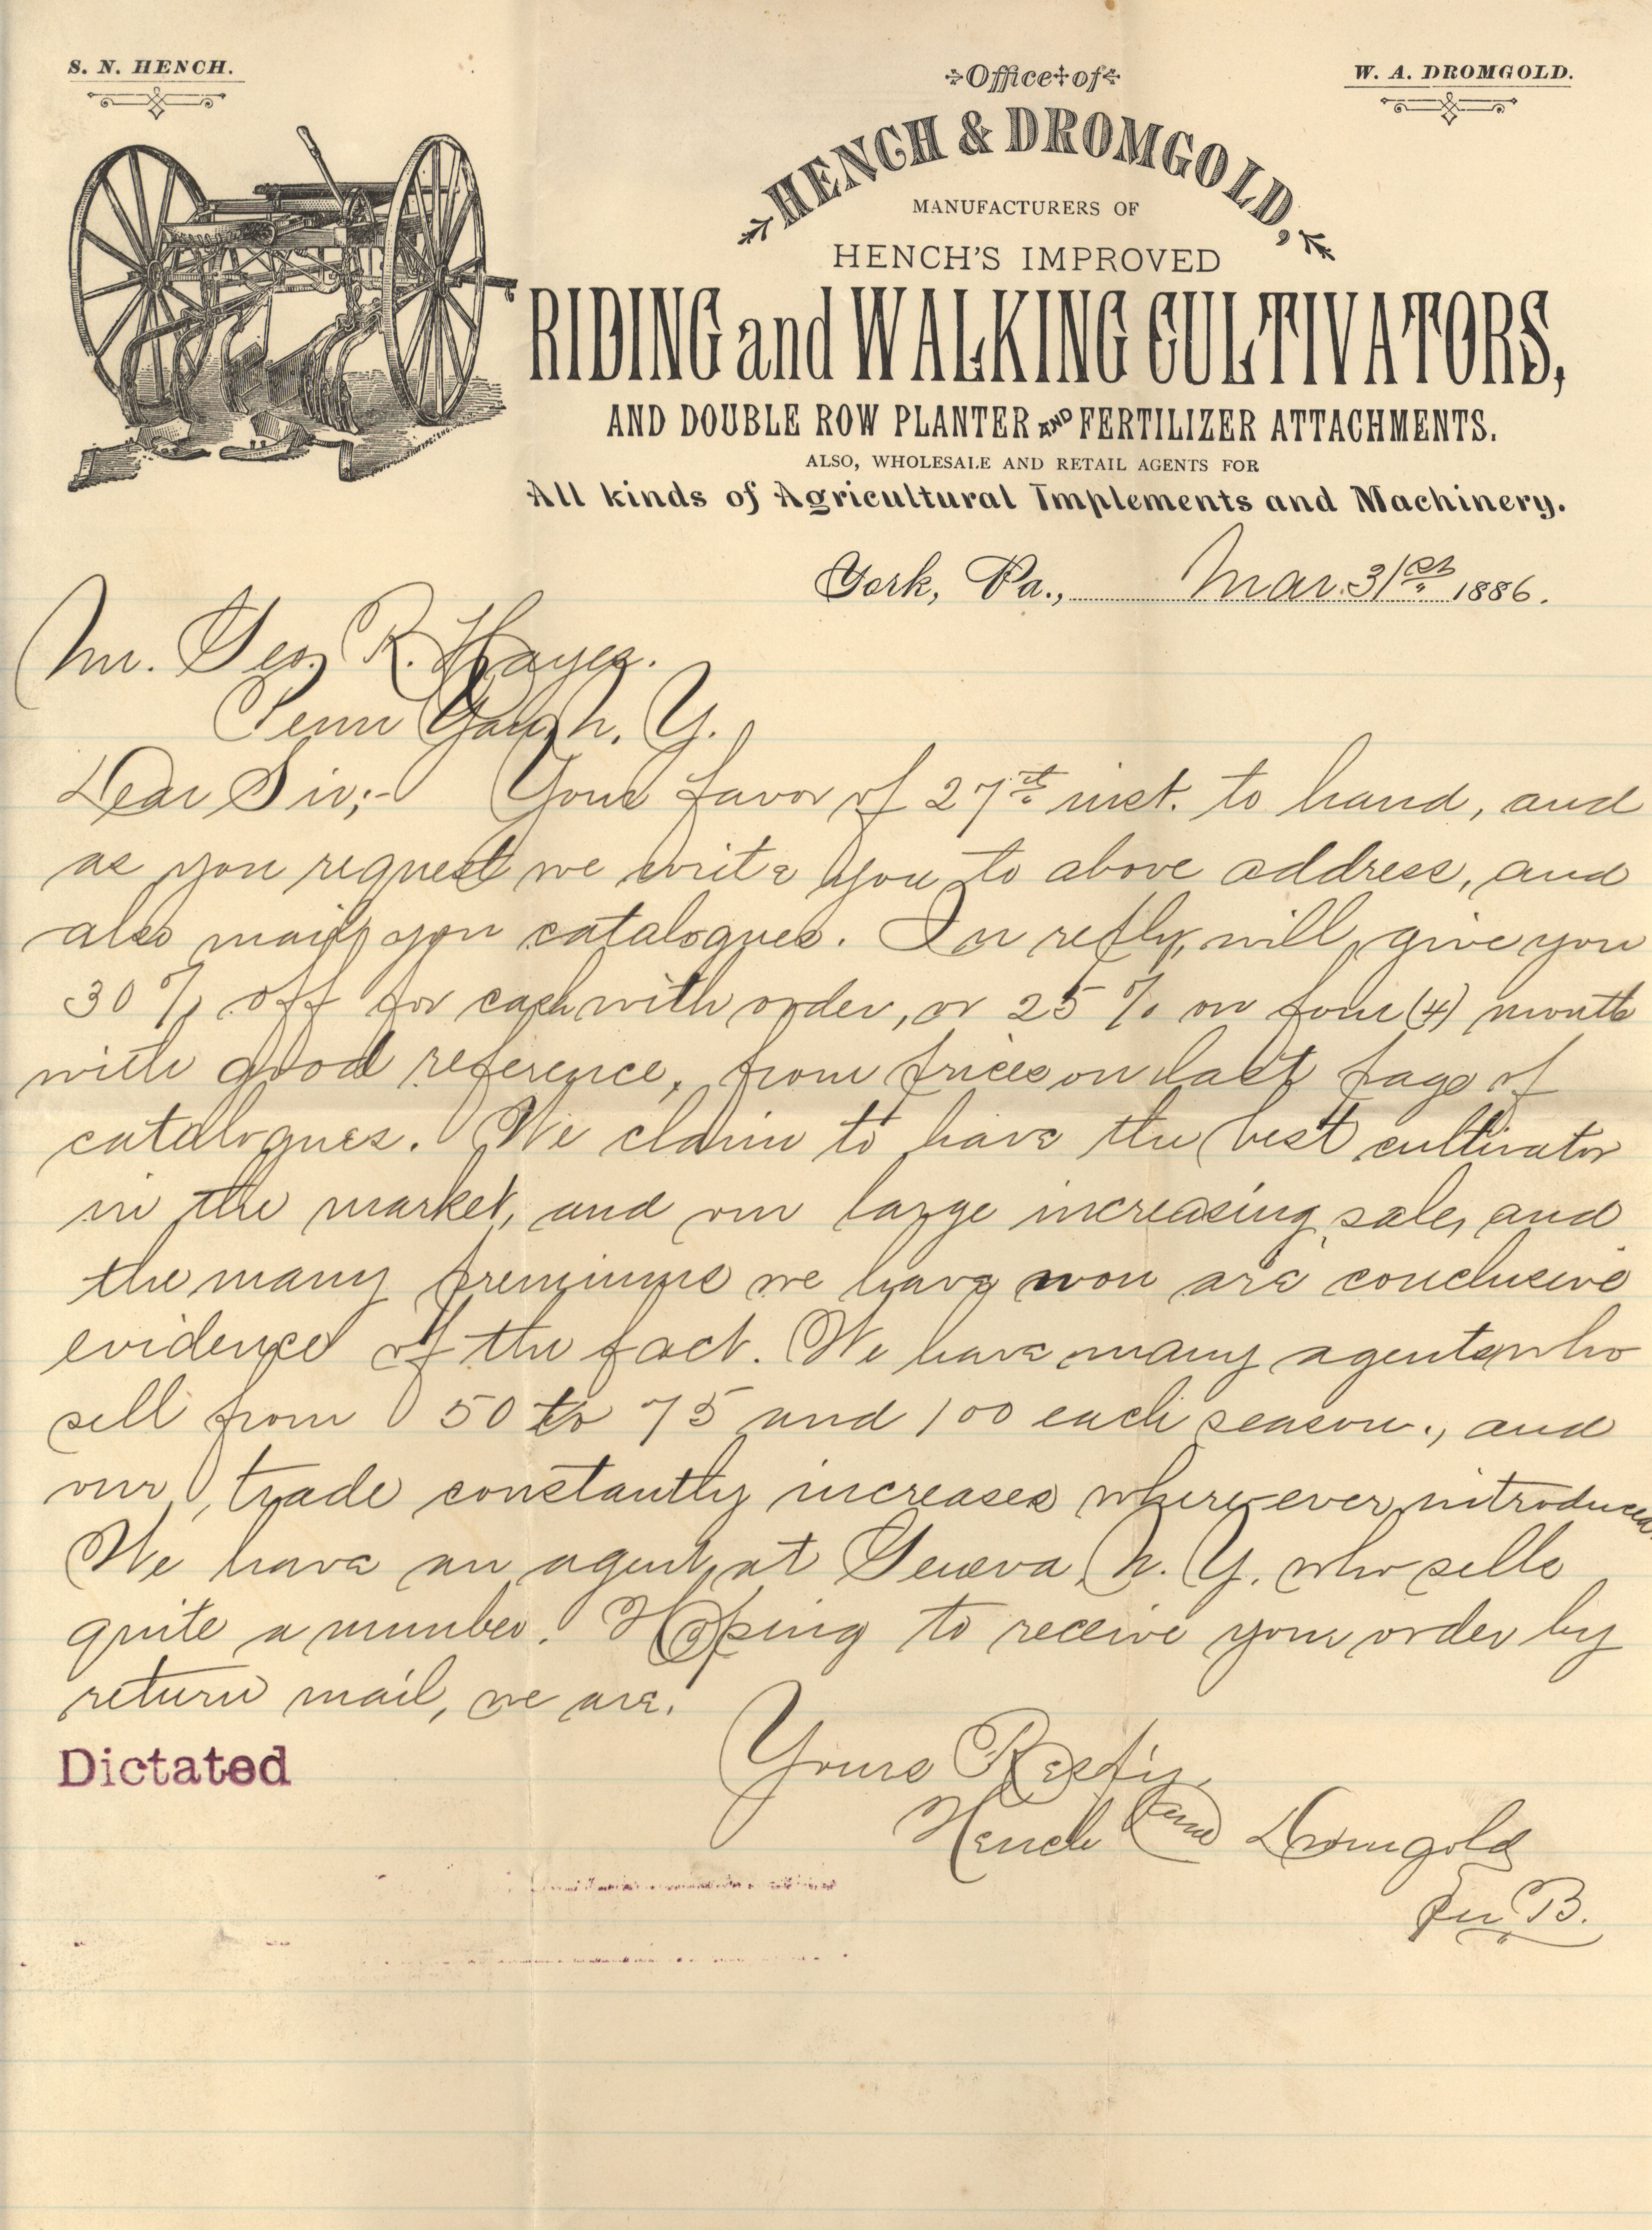 S. N. HENCH.
Office of
W. A. DROMGOLD.
HENCH & DROMGOLD,
MANUFACTURERS OF
HENCH'S IMPROVED
RIDING and WALKING CULTIVATORS,
AND DOUBLE ROW PLANTER AND FERTILIZER ATTACHMENTS.
ALSO, WHOLESALE AND RETAIL AGENTS FOR
All kinds of Agricultural Implements and Machinery.
York, Pa., Mar. 31st 1886.
Mr. Geo. R. Hayes.
Penn Yan, N. Y.
Dear Sir;- Your favor of 27th inst. to hand, and
as you request we write you to above address, and
also mail you catalogues. In reply, will give you
30 % off for cash with order, or 25 % on four (4) month
with good reference, from prices on last page of
catalogues. We claim to have the best cultivator
in the market, and our large increasing sale, and
the many premiums we have won are conclusive
evidence of the fact. We have many agents who
sell from 50 to 75 and 100 each season., and
our trade constantly increases where-ever introduced.
We have an agent at Geneva, N. Y. who sells
quite a number. Hoping to receive your order by
return mail, we are.
Dictated
Yours Resp'y,
Hench and Dromgold
Per B.